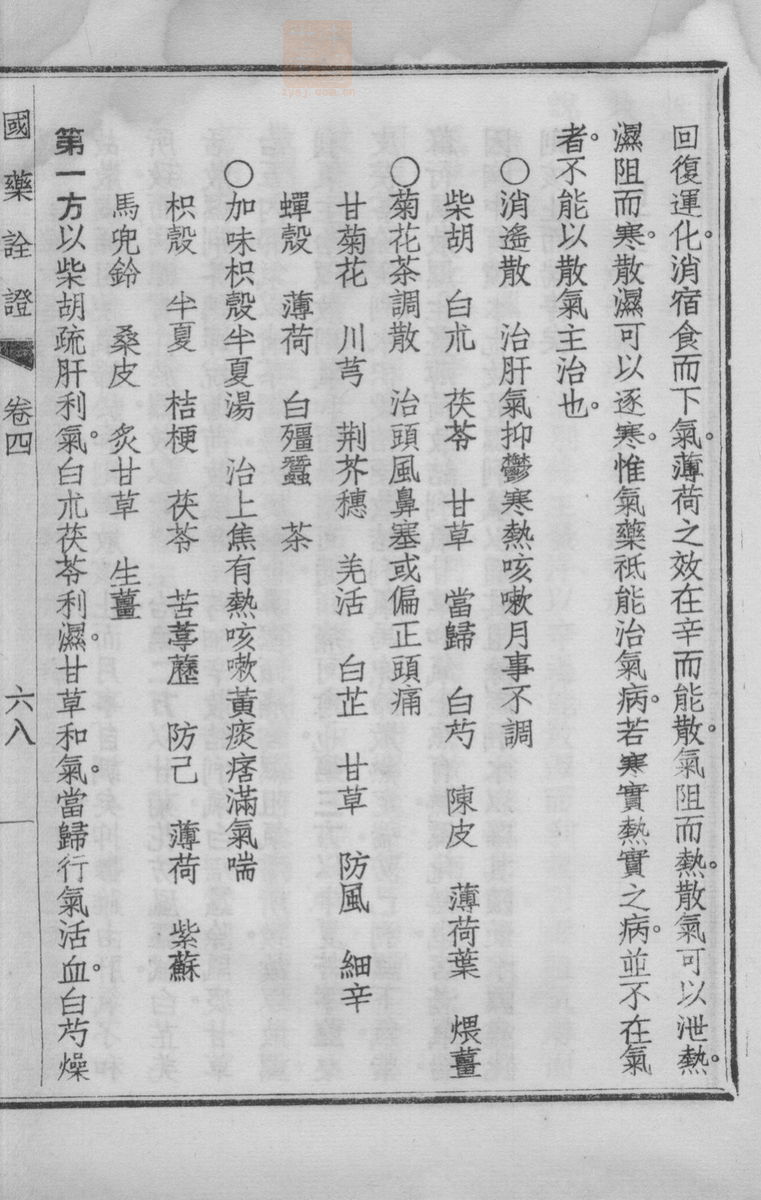 回復運化。消宿食而下氣。薄荷之效在辛而能散。氣阻而熱。散氣可以泄熱。
濕阻而寒。散濕可以逐寒。惟氣藥祇能治氣病。若寒實熱實之病。並不在氣
者。不能以散氣主治也。
〇消遙散　治肝氣抑鬱寒熱咳嗽月事不調
柴胡　白朮　茯苓　甘草　當歸　白芍　陳皮　薄荷葉　煨薑
〇菊花茶調散　治頭風鼻塞或偏正頭痛
甘菊花　川芎　荆芥穗　羌活　白芷　甘草　防風　細辛
蟬殼　薄荷　白殭蠶　茶
〇加味枳殼半夏湯　治上焦有熱咳嗽黃痰痞滿氣喘
枳殼　半夏　桔梗　茯苓　苦葶藶　防己　薄荷　紫蘇
馬兜鈴　桑皮　炙甘草　生薑
第一方以柴胡疏肝利氣。白朮茯苓利濕。甘草和氣。當歸行氣活血。白芍燥
國藥詮證　卷四　六八